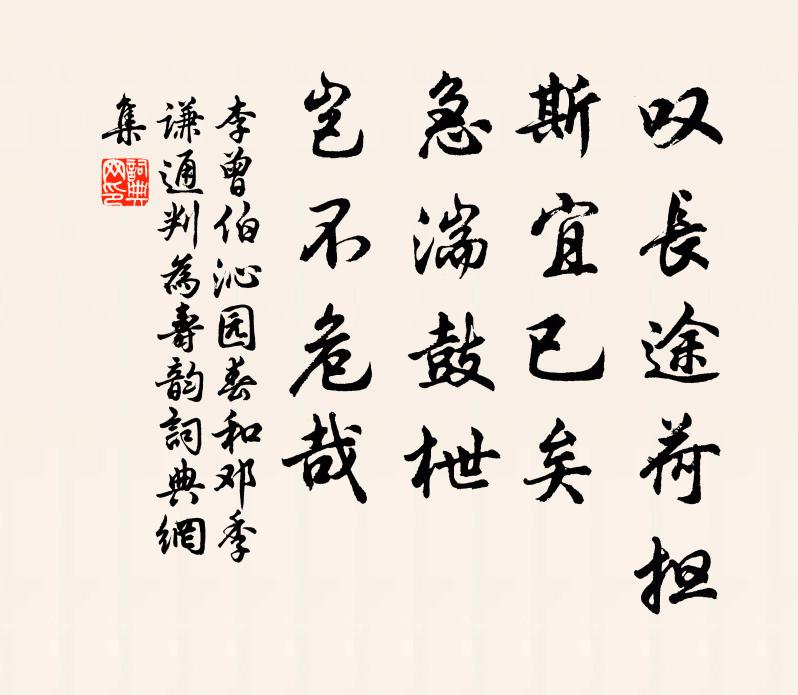 叹長途荷担
斯宜已矣
急湍鼓枻
岂不危哉
李曾伯沁园春和邓季
谦通判為壽韵詞典網
集
詞典
网印